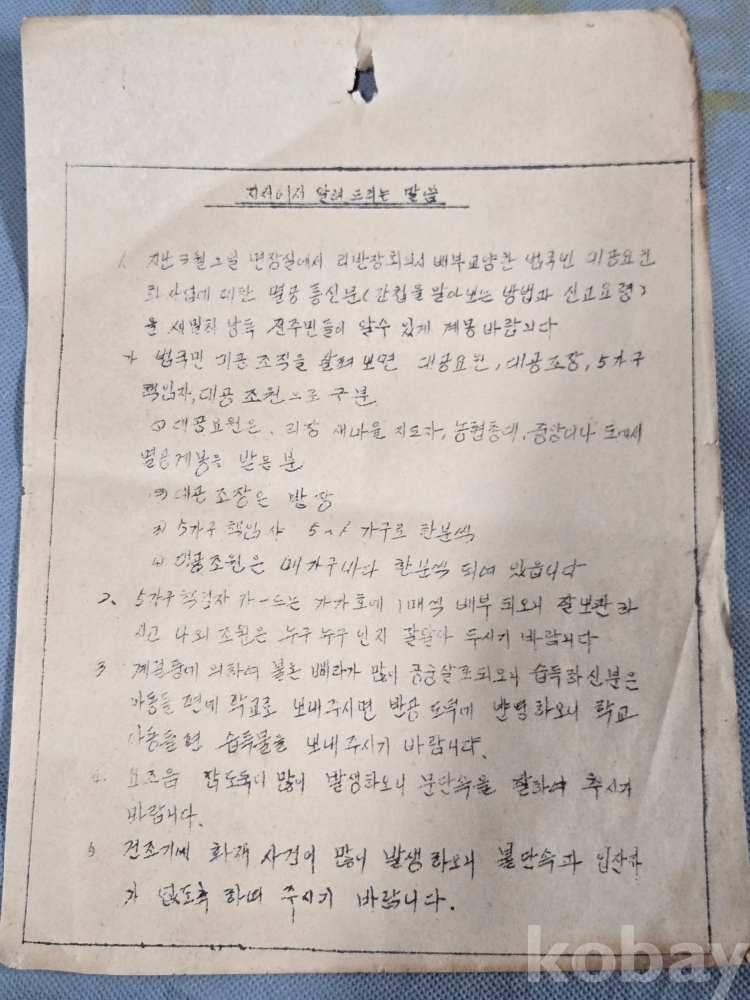 지서에서 알려 드리는 말씀
1. 지난 3월 2일 면장실에서 리반장회의시 배부교양한 범국민 대공요원
화 사업에 대한 멸공통신문(간첩을 알아보는 방법과 신고요령)
을 세밀히 낭독 전주민들이 알수 있게 계몽 바랍니다
가 범국민 대공 조직을 살펴보면 대공요원, 대공조장, 5가구
책임자, 대공 조원으로 구분
대공요원은, 리장 새마을 지도자, 농협총대, 중앙이나 도에서
멸공계몽을 받은 분
대공 조장은 반장
5가구 책임자 가구로 한분씩
대공조원은 매 가구마다 한분씩 되여 있습니다
2. 5가구 책임자 카-드는 가가호에 1매씩 배부 되오니 잘보관 하
시고 나의 조원은 누구 누구 인지 잘알아 두시기 바랍니다
3 계절풍에 의하여 불온 삐라가 많이 공중살포되오니 습득하신분은
아동들 편에 학교로 보내주시면 반공 도덕에 반영하오니 학교
아동들편 습득물을 보내주시기 바랍니다.
4. 요조음 잔도둑이 많이 발생하오니 문단속을 잘하여 주시기
바랍니다.
5 건조기에 화재 사건이 많이 발생하오니 불단속과 입산자
가 없도록 하여 주시기 바랍니다.
kobay